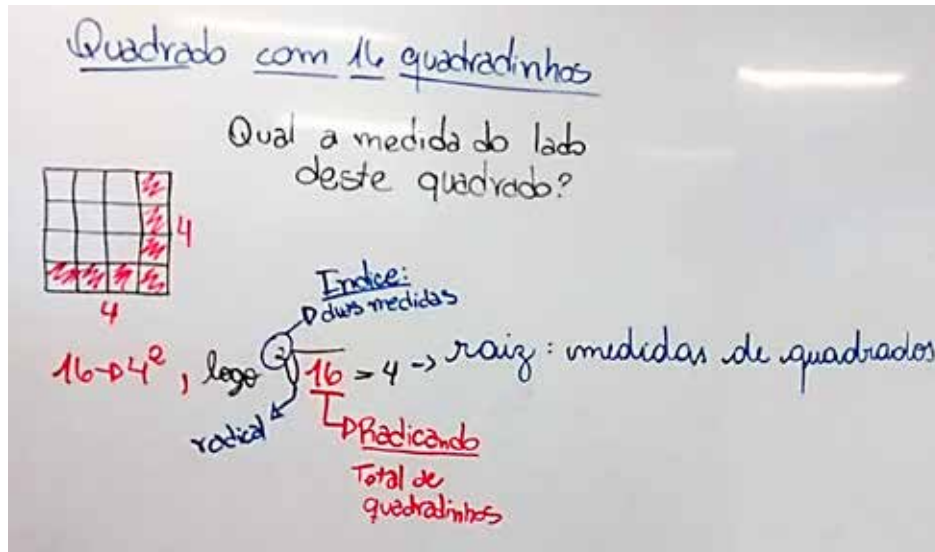 Quadrado com 16 quadradinhos
Qual a medida do lado
deste quadrado?
4
4
Indice:
duas medidas
16→4², logo ²√16 = 4 → raiz: medidas de quadrados
radical
Radicando
Total de
quadradinhos